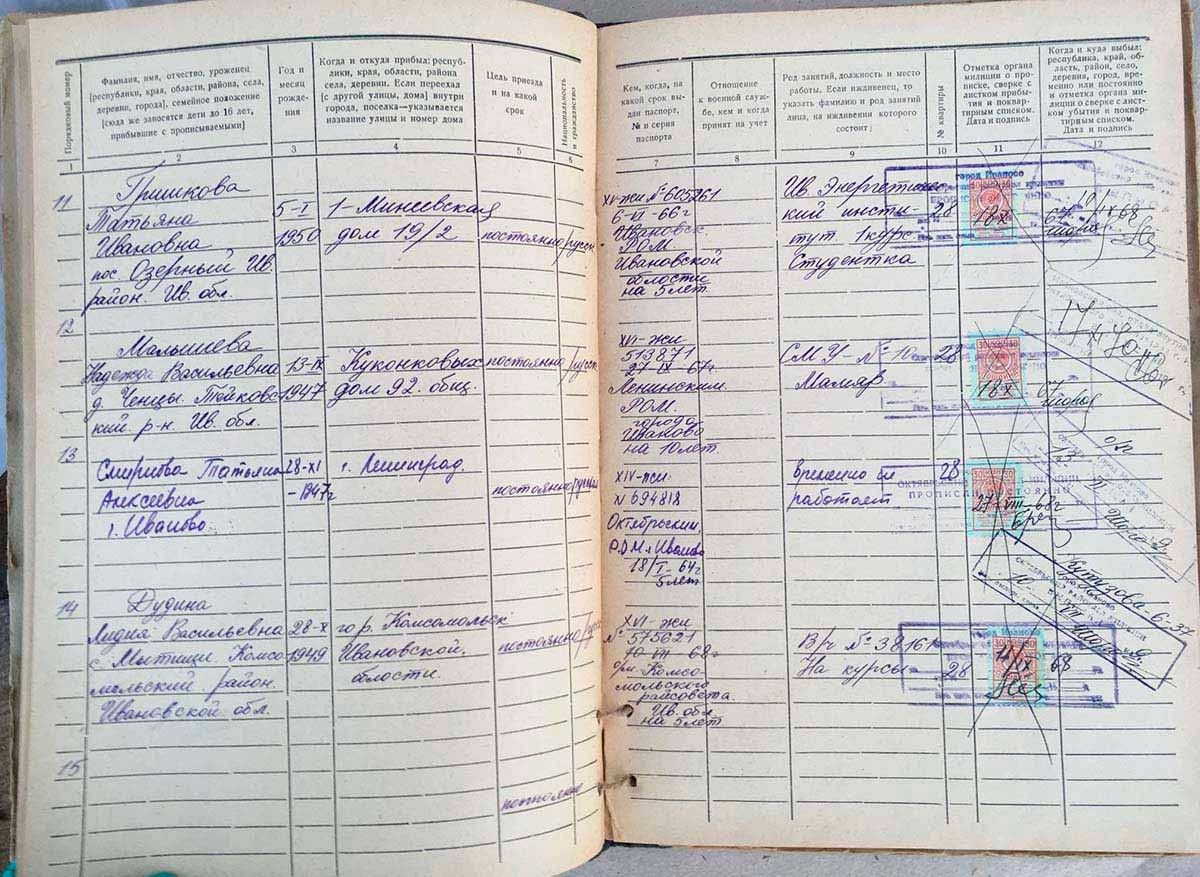 Порядковый номер
Фамилия, имя, отчество, уроженец
[республики, края, области, района, села,
деревни, города], семейное положение
[сюда же заносятся дети до 16 лет,
прибывшие с прописываемыми]
Год и
месяц
рожде-
ния
Когда и откуда прибыл: респуб-
лики, края, области, района
села, деревни. Если переехал
[с другой улицы, дома] внутри
города, поселка—указывается
название улицы и номер дома
Цель приезда
и на какой
срок
Национальность
и гражданство
1
2
3
4
5
6
11
Гришкова
Татьяна
Ивановна
пос. Озерный Ив.
район. Ив. обл.
5-I
1950
1-Минеевская
дом 19/2
постоянно
русск
12
Малышева
Надежда Васильевна
д. Ченцы. Тейковс
кий. р-н. Ив. обл.
13-IX
1947
Куконковых
дом 92. общ.
постоянно
русск
13
Смирнова Татьяна
Алексеевна
г. Иваново.
28-XI
-1947г
г. Ленинград.
постоянно
русская
14
Дудина
Лидия Васильевна
с. Мытищи. Комсо
мольский район.
Ивановской. обл.
28-X
1949
гор. Комсомольск
Ивановской.
области.
постоянно
русск
15
постоянно
Кем, когда, на
какой срок вы-
дан паспорт,
№ и серия
паспорта
Отношение
к военной служ-
бе, кем и когда
принят на учет
Род занятий, должность и место
работы. Если иждивенец, то
указать фамилию и род занятий
лица, на иждивении которого
состоит]
№ квартиры
Отметка органа
милиции о про-
писке, сверке с
листком прибы-
тия и поквар-
тирным списком.
Дата и подпись
Когда и куда выбыл:
республика, край, об-
ласть, район, село,
деревня, город, вре-
менно или постоянно
и отметка органа ми-
лиции о сверке с лист-
ком убытия и поквар-
тирным списком.
Дата и подпись
7
8
9
10
11
12
XV-жи №605261
6-VI-66г
Ивановск.
РОМ.
Ивановской
области
на 5 лет.
Ив. Энергетичес
кий инсти-
тут 1 курс.
Студентка
28
город Иваново
18 X
67
10/X 68
XVI-жи
513871
27-IX-67г
Ленинским
РОМ.
города
Иваново
на 10 лет
СМУ-№10
Маляр.
28
18 X
67
XIV-жи
N 694818
Октябрьским
РОМ г Иваново
18/I-64г
5 лет
Временно не
работает
28
ПРОПИСАН ПОСТОЯННО
27 VIII-68г
XVI-жи
№ 575621
10-VII-68г
орм. Комсо-
мольского
райсовета.
Ив. обл
на 5 лет
Вр №38161
На курсы
28
город Иваново
11/IX 68
Кутузова-6-37